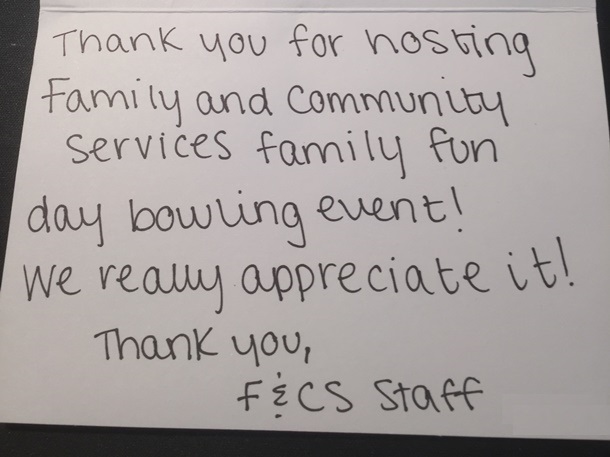 Thank you for hosting
Family and Community
Services family fun
day bowling event!
We really appreciate it!
Thank you,
F&CS Staff